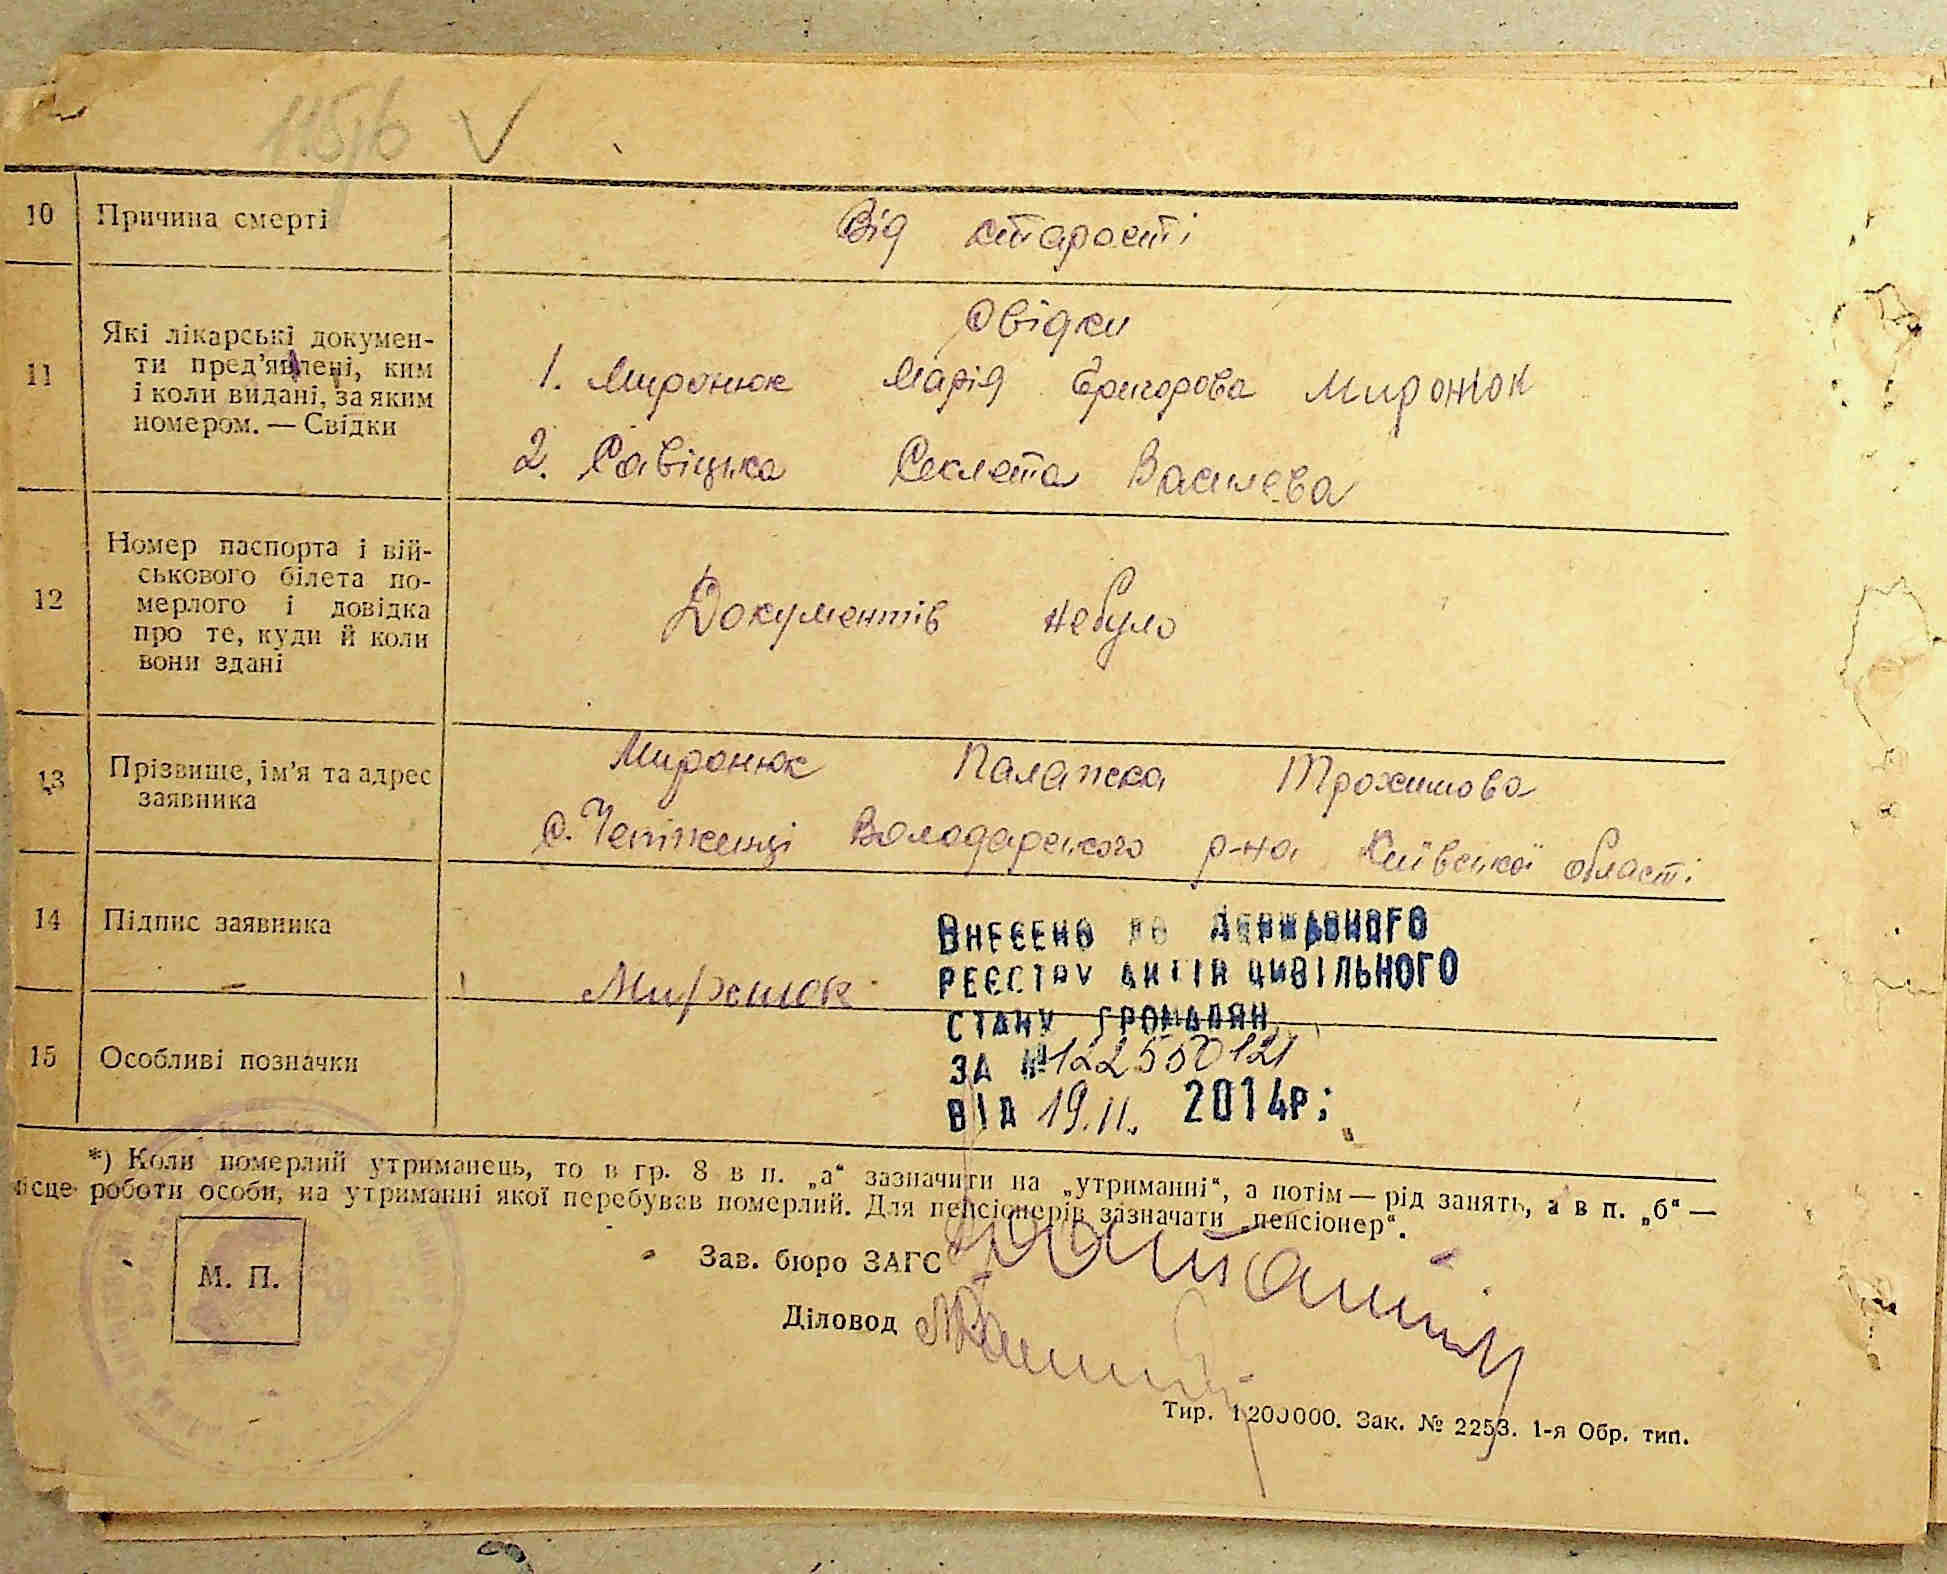 115/б
10 Причина смерті Від старости
Свідки
11 Які лікарські докумен-
ти пред'явлені, ким
і коли видані, за яким
номером. — Свідки
1. Миронюк Марія Григорова Миронюк
2. Савіцька Секлета Василева
12 Номер паспорта і вій-
ськового білета по-
мерлого і довідка
про те, куди й коли
вони здані
Документів небуло
13 Прізвище, ім'я та адрес
заявника
Миронюк Палажка Трохимова
с. Чепіженці Володарського р-на Київської області
14 Підпис заявника
Миронюк
15 Особливі позначки
Внесено до Державного
реєстру актів цивільного
стану громадян
за №122550121
від 19.11. 2014р.
*) Коли померлий утриманець, то в гр. 8 в п. „а“ зазначити на „утриманні“, а потім — рід занять, а в п. „б“ —
місце роботи особи, на утриманні якої перебував померлий. Для пенсіонерів зазначати „пенсіонер“.
М. П.
Зав. бюро ЗАГС
Діловод
Тир. 1200000. Зак. № 2253. 1-я Обр. тип.